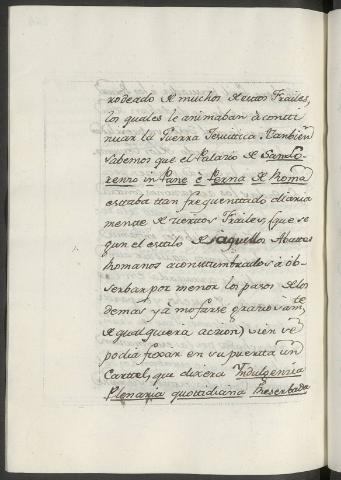 rodeado de muchos de estos Frailes,
los quales le animaban à conti
nuar la Guerra Jesuitica. Tanbien
sabemos que el Palacio de San Lo-
renzo in Pane è Perna de Roma
estaba ttan frequenttado diaria
mente de ciertos Frailes, (que se
gun el estilo de aquellos Abates
Romanos acosttumbrados à ob-
serbar por menor los pasos de los
demas y à mofarse graciosamte
de qual quiera accion) vien se
podia fixar en su puertta un
Carttel, que dixera Indulgencia
Plenaria quottidiana Reserbada